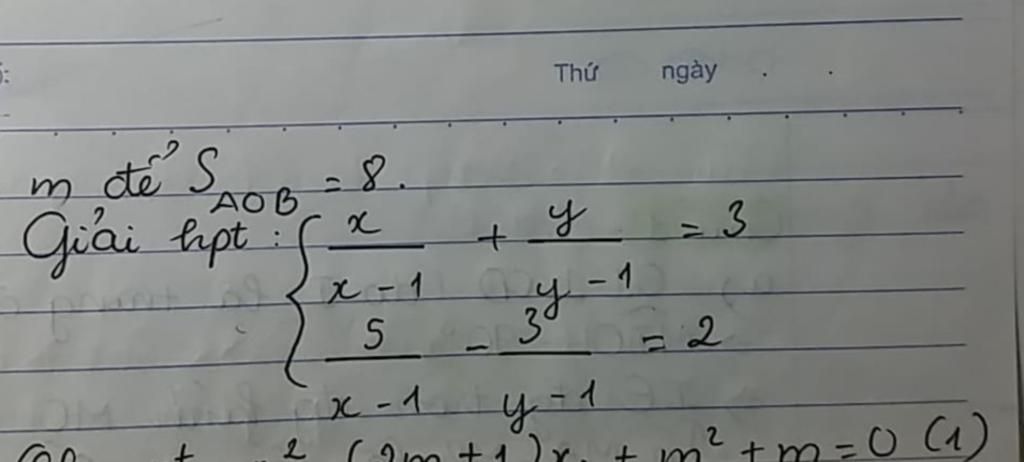 Thứ ngày . .
m để S_AOB = 8.
Giải hpt : { x/(x - 1) + y/(y - 1) = 3
5/(x - 1) - 3/(y - 1) = 2
(2m + 1)x + m² + m = 0 (1)